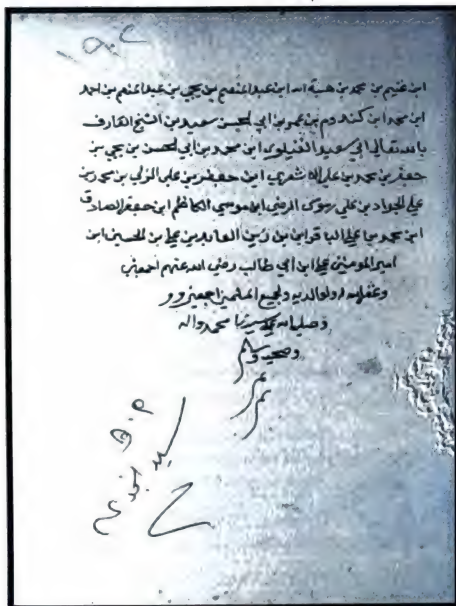 ابن غنيم بن محمد بن هبة الله ابن عبد المنعم بن يحيى بن عبد المنعم بن احمد
ابن محمد ابن كندوم بن عمر بن ابي الحسن سعيد بن الشيخ العارف
بالله تعالى ابي سعيد القيلوى ابن محمد بن ابي الحسن بن يحيى بن
جعفر بن محمد بن على الاشعرى ابن جعفر بن على الزكي بن محمد بن
على الجواد بن على موسى الرضى ابن موسى الكاظم ابن جعفر الصادق
ابن محمد بن على الباقر ابن بن زين العابدين على بن الحسين ابن
امير المومنين على ابن ابي طالب رضى الله عنهم اجمعين
وغفر الله له ولوالديه ولجميع المسلمين اجمعين
وصلى الله على سيدنا محمد واله
وصحبه وسلم
سيد